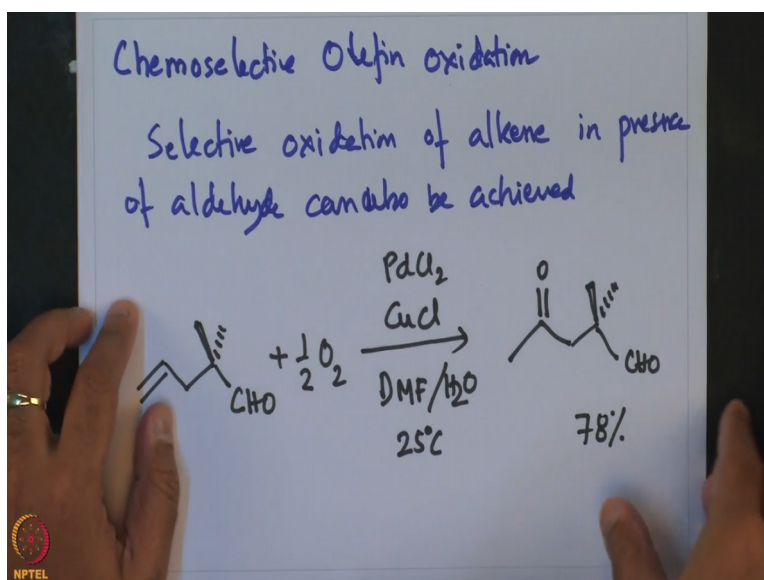 Chemoselective Olefin oxidation
Selective oxidation of alkene in presnce
of aldehyde can also be achieved
PdCl2
CuCl
+ 1/2 O2
DMF/H2O
25°C
CHO
O
CHO
78%
NPTEL